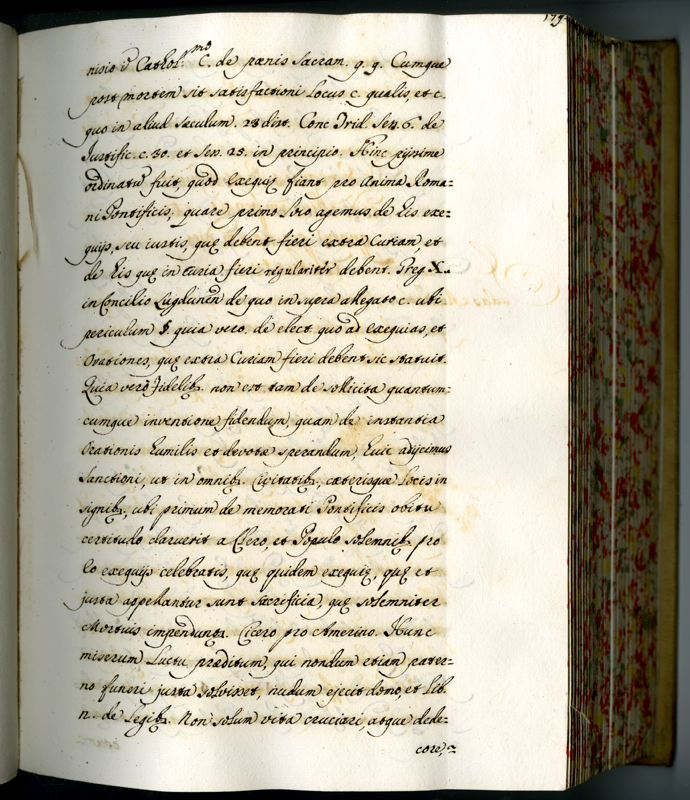 nisio v Cathol.mo C. de pœnis Sacram. q. q. Cumque
post mortem sit satisfactioni Locus c. qualis, et c.
quo in aliud sæculum. 28 dist. Conc Trid. Sess. 6. de
Justific. c. 30. et Sess. 25. in principio. Hinc pijssime
ordinatũ fuit, quod exequię fiant pro Anima Roma-
ni Pontificis; quare primo loco agemus de his exe-
quijs, seu iustis, quę debent fieri extra Curiam, et
de his quę in Curia fieri regulariter debent. Greg X.
in Concilio Lugdunen̄ de quo in supra allegato c. ubi
periculum §. quia vero. de elect. quo ad exequias, et
Orationes, quę extra Curiam fieri debent sic statuit.
Quia verò fidelib. non est tam de sollicita quantum-
cumque inventione fidendum, quam de instantia
Orationis humilis et devotæ sperandum, huic adijcimus
Sanctioni, ut in omnib. Civitatib., cæterisque Locis in
signib., ubi primum de memorati Pontificis obitu
certitudo claruerit a Clero, et Populo solemnib. pro
Eo exequijs celebratis, quę quidem exequię, quę et
justa appellantur sunt sacrificia, quę solemniter
Mortuis impendunt. Cicero pro Amerino. Hunc
miserum Luctu præditum, qui nondum etiam pater-
no funeri justa solvisset, nudum ejecit domo, et Lib.
n. de Legib. Non solum vita cruciari, atque dede-
core,